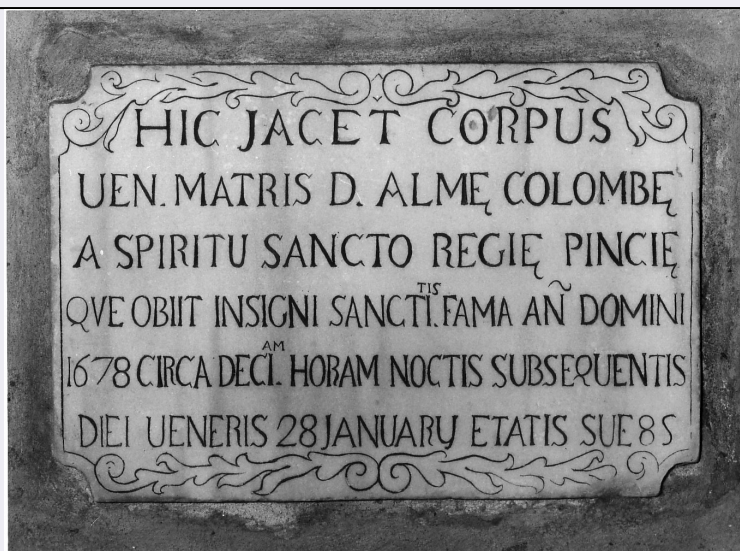 HIC JACET CORPUS
UEN. MATRIS D. ALMĘ COLOMBĘ
A SPIRITU SANCTO REGIĘ PINCIĘ
QVE OBIIT INSIGNI SANCTI.TIS FAMA AÑ DOMINI
1678 CIRCA DECI.AM HORAM NOCTIS SUBSEQUENTIS
DIEI UENERIS 28 JANUARY ETATIS SUE 85